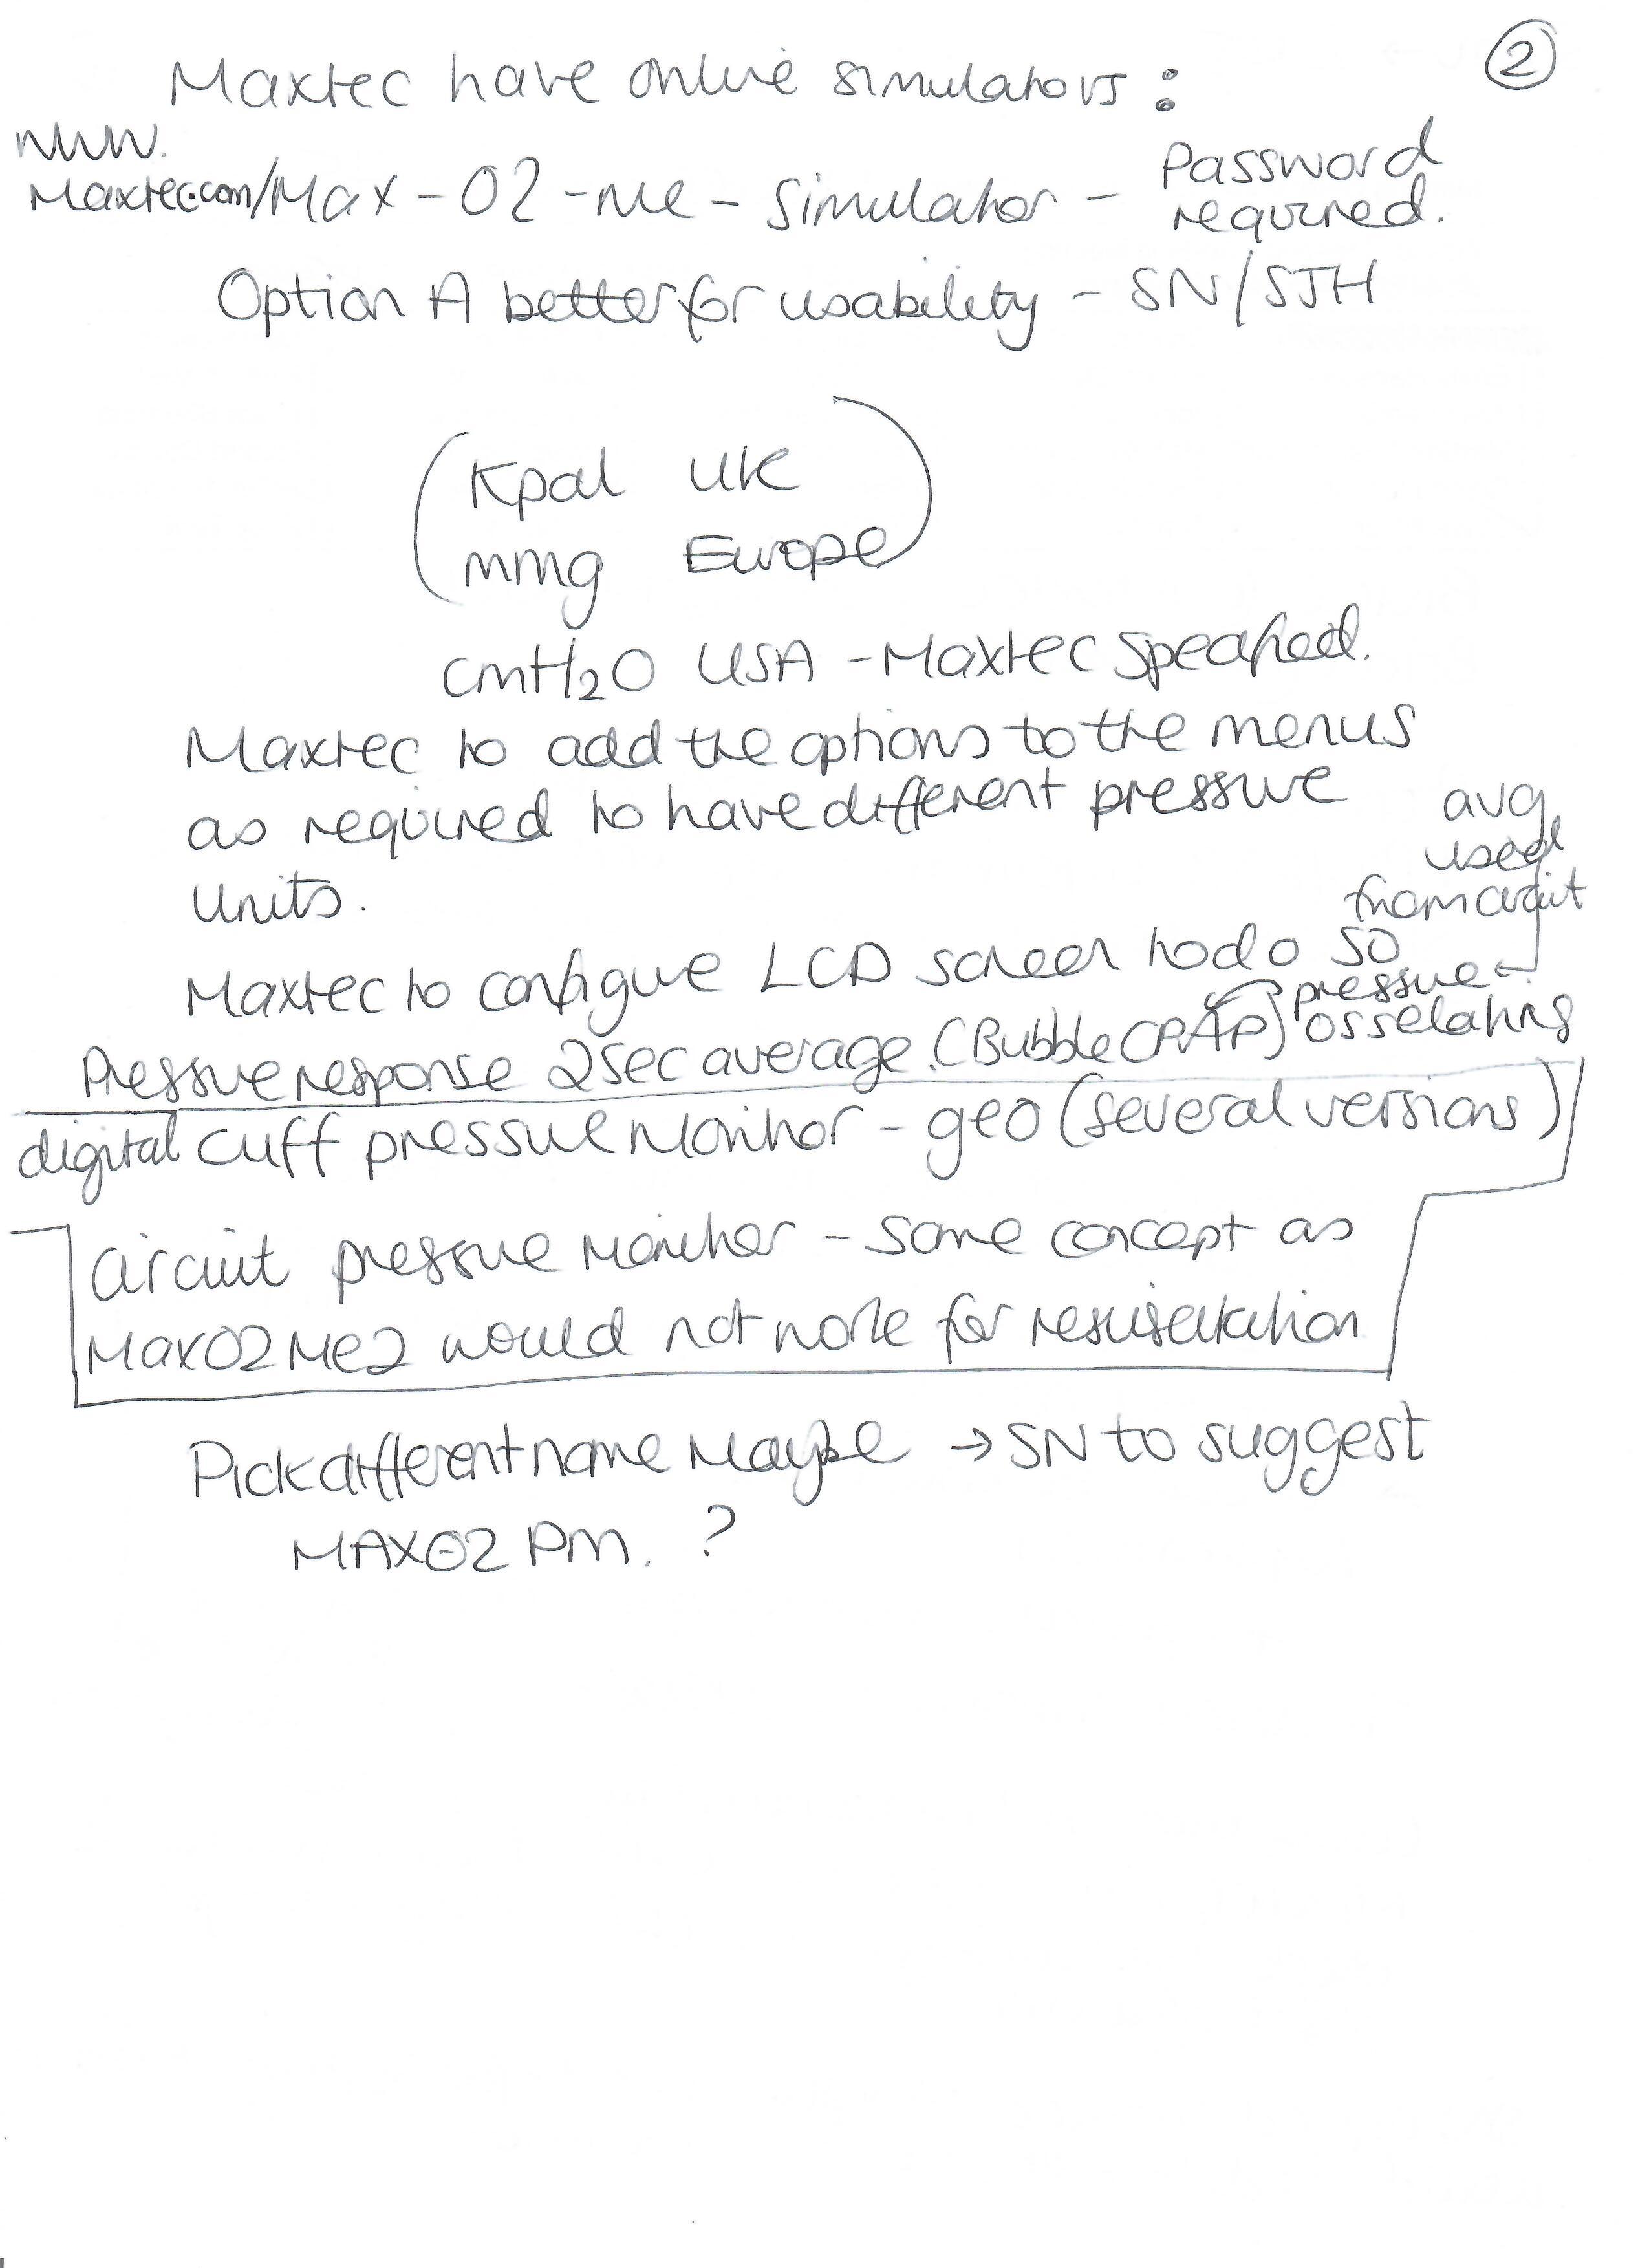 ②
Maxtec have online simulators:
www.
Maxtec.com/Max-O2-me-Simulator - Password
required.
Option A better for usability - SN/STH
(Kpal UK
mmg Europe)
cmH2O USA - Maxtec specified.
Maxtec to add the options to the menus
as required to have different pressure
units.
avg
used
from
Maxtec to configure LCD screen to do so
pressure
Pressure response 2 sec average. (Bubble CPAP) osselating
digital cuff pressure monitor - geo (several versions)
circuit pressure monitor - same concept as
MaxO2Me2 would not work for
Pick different name Maybe → SN to suggest
MAXO2 PM. ?